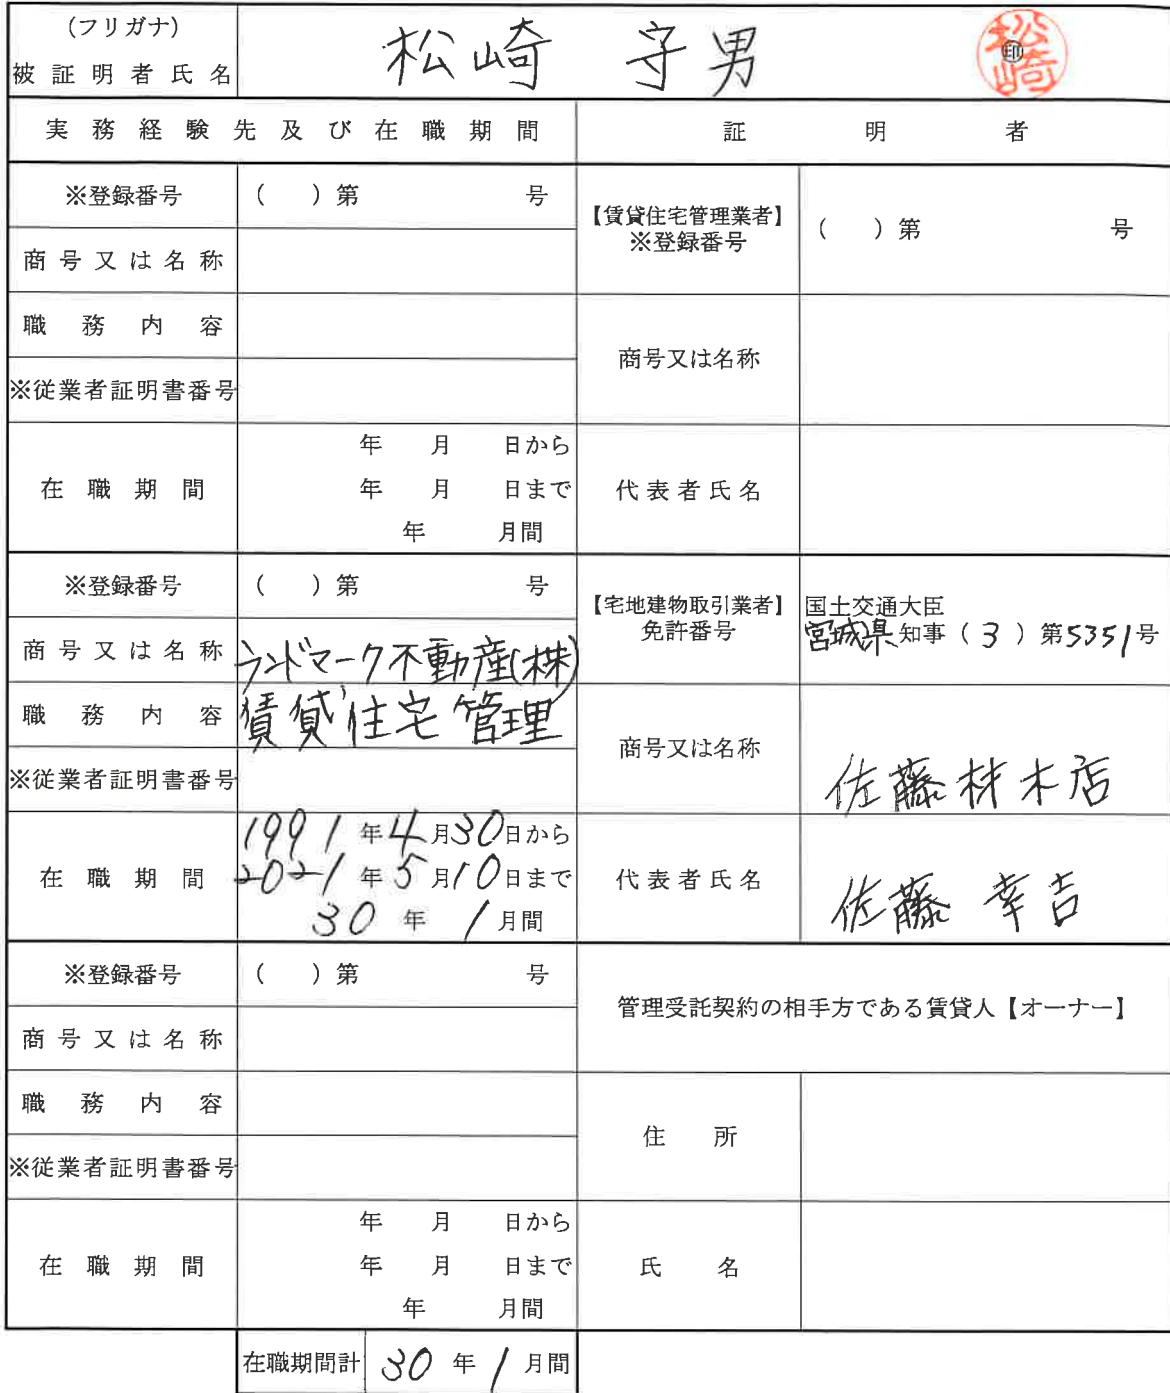 (フリガナ)
被証明者氏名 松崎 守男 印 松崎
実務経験先及び在職期間 証明者
※登録番号 ( ) 第 号
【賃貸住宅管理業者】
※登録番号 ( ) 第 号
商号又は名称
職務内容
商号又は名称
※従業者証明書番号
在職期間
年 月 日から
年 月 日まで
年 月間
代表者氏名
※登録番号 ( ) 第 号
【宅地建物取引業者】
免許番号
国土交通大臣
宮城県知事 ( 3 ) 第5351号
商号又は名称 ランドマーク不動産(株)
職務内容 賃貸住宅管理
商号又は名称 佐藤材木店
※従業者証明書番号
在職期間
1991年4月30日から
2021年5月10日まで
30年1月間
代表者氏名 佐藤 幸吉
※登録番号 ( ) 第 号
管理受託契約の相手方である賃貸人【オーナー】
商号又は名称
職務内容
住所
※従業者証明書番号
在職期間
年 月 日から
年 月 日まで
年 月間
氏名
在職期間計 30年1月間